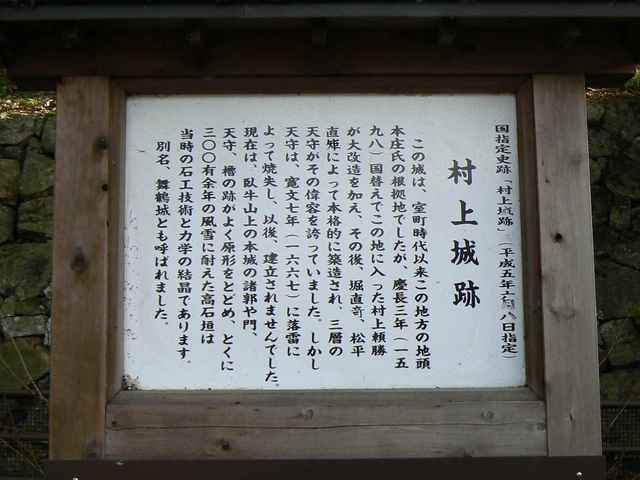 国指定史跡「村上城跡」（平成五年六月八日指定）
村上城跡
この城は、室町時代以来この地方の地頭
本庄氏の根拠地でしたが、慶長三年（一五
九八）国替えでこの地に入った村上頼勝
が大改造を加え、その後、堀直竒、松平
直矩によって本格的に築造され、三層の
天守がその偉容を誇っていました。しかし
天守は、寛文七年（一六六七）に落雷に
よって焼失し、以後、建立されませんでした。
現在は、臥牛山上の本城の諸郭や門、
天守、櫓の跡がよく原形をとどめ、とくに
三〇〇有余年の風雪に耐えた高石垣は
当時の石工技術と力学の結晶であります。
別名、舞鶴城とも呼ばれました。